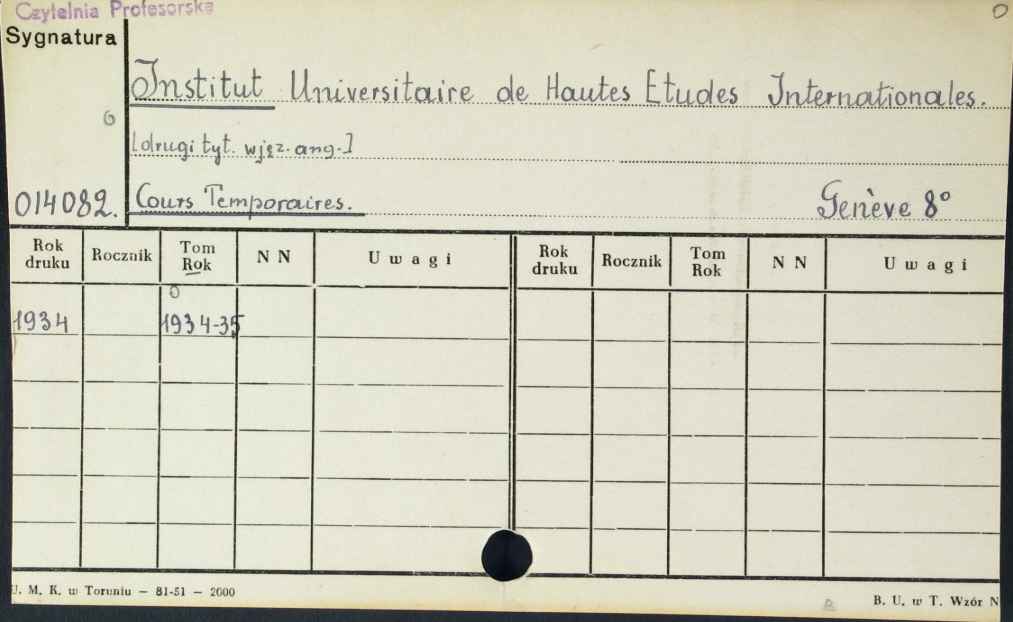 Czytelnia Profesorska
Sygnatura
Institut Universitaire de Hautes Etudes Internationales.
[drugi tyt. w jęz. ang.]
014082.
Cours Temporaires.
Genève 8°
Rok druku Rocznik Tom Rok N N Uwagi Rok druku Rocznik Tom Rok N N Uwagi
1934 1934-35
U. M. K. w Toruniu — 81-51 — 2000
B. U. w T. Wzór N